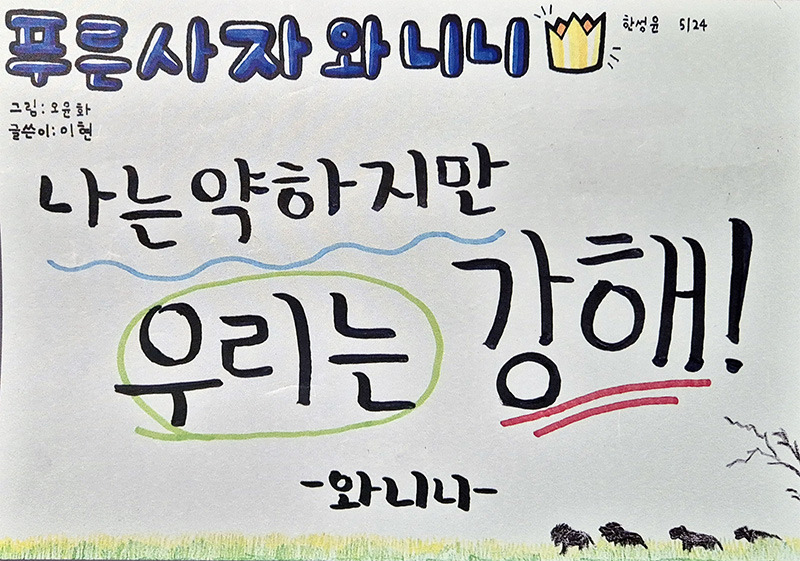 푸른사자 와니니
한성윤 5/24
그림:오윤화
글쓴이:이현
나는 약하지만
우리는 강해!
-와니니-